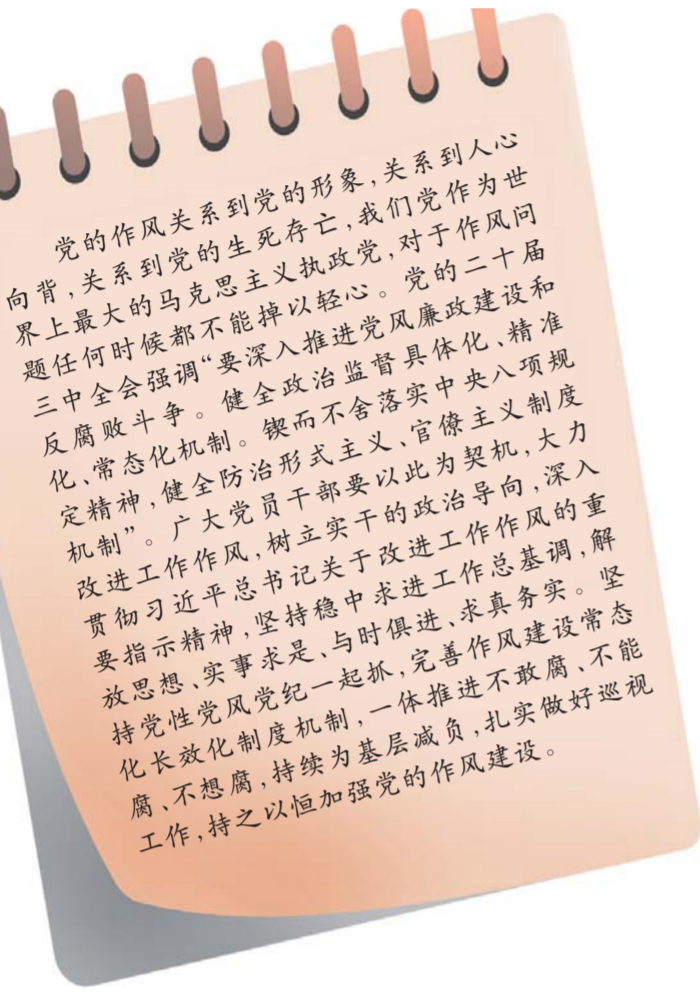 党的作风关系到党的形象，关系到人心
向背，关系到党的生死存亡，我们党作为世
界上最大的马克思主义执政党，对于作风问
题任何时候都不能掉以轻心。党的二十届
三中全会强调“要深入推进党风廉政建设和
反腐败斗争。健全政治监督具体化、精准
化、常态化机制。锲而不舍落实中央八项规
定精神，健全防治形式主义、官僚主义制度
机制”。广大党员干部要以此为契机，大力
改进工作作风，树立实干的政治导向，深入
贯彻习近平总书记关于改进工作作风的重
要指示精神，坚持稳中求进工作总基调，解
放思想、实事求是、与时俱进、求真务实。坚
持党性党风党纪一起抓，完善作风建设常态
化长效化制度机制，一体推进不敢腐、不能
腐、不想腐，持续为基层减负，扎实做好巡视
工作，持之以恒加强党的作风建设。